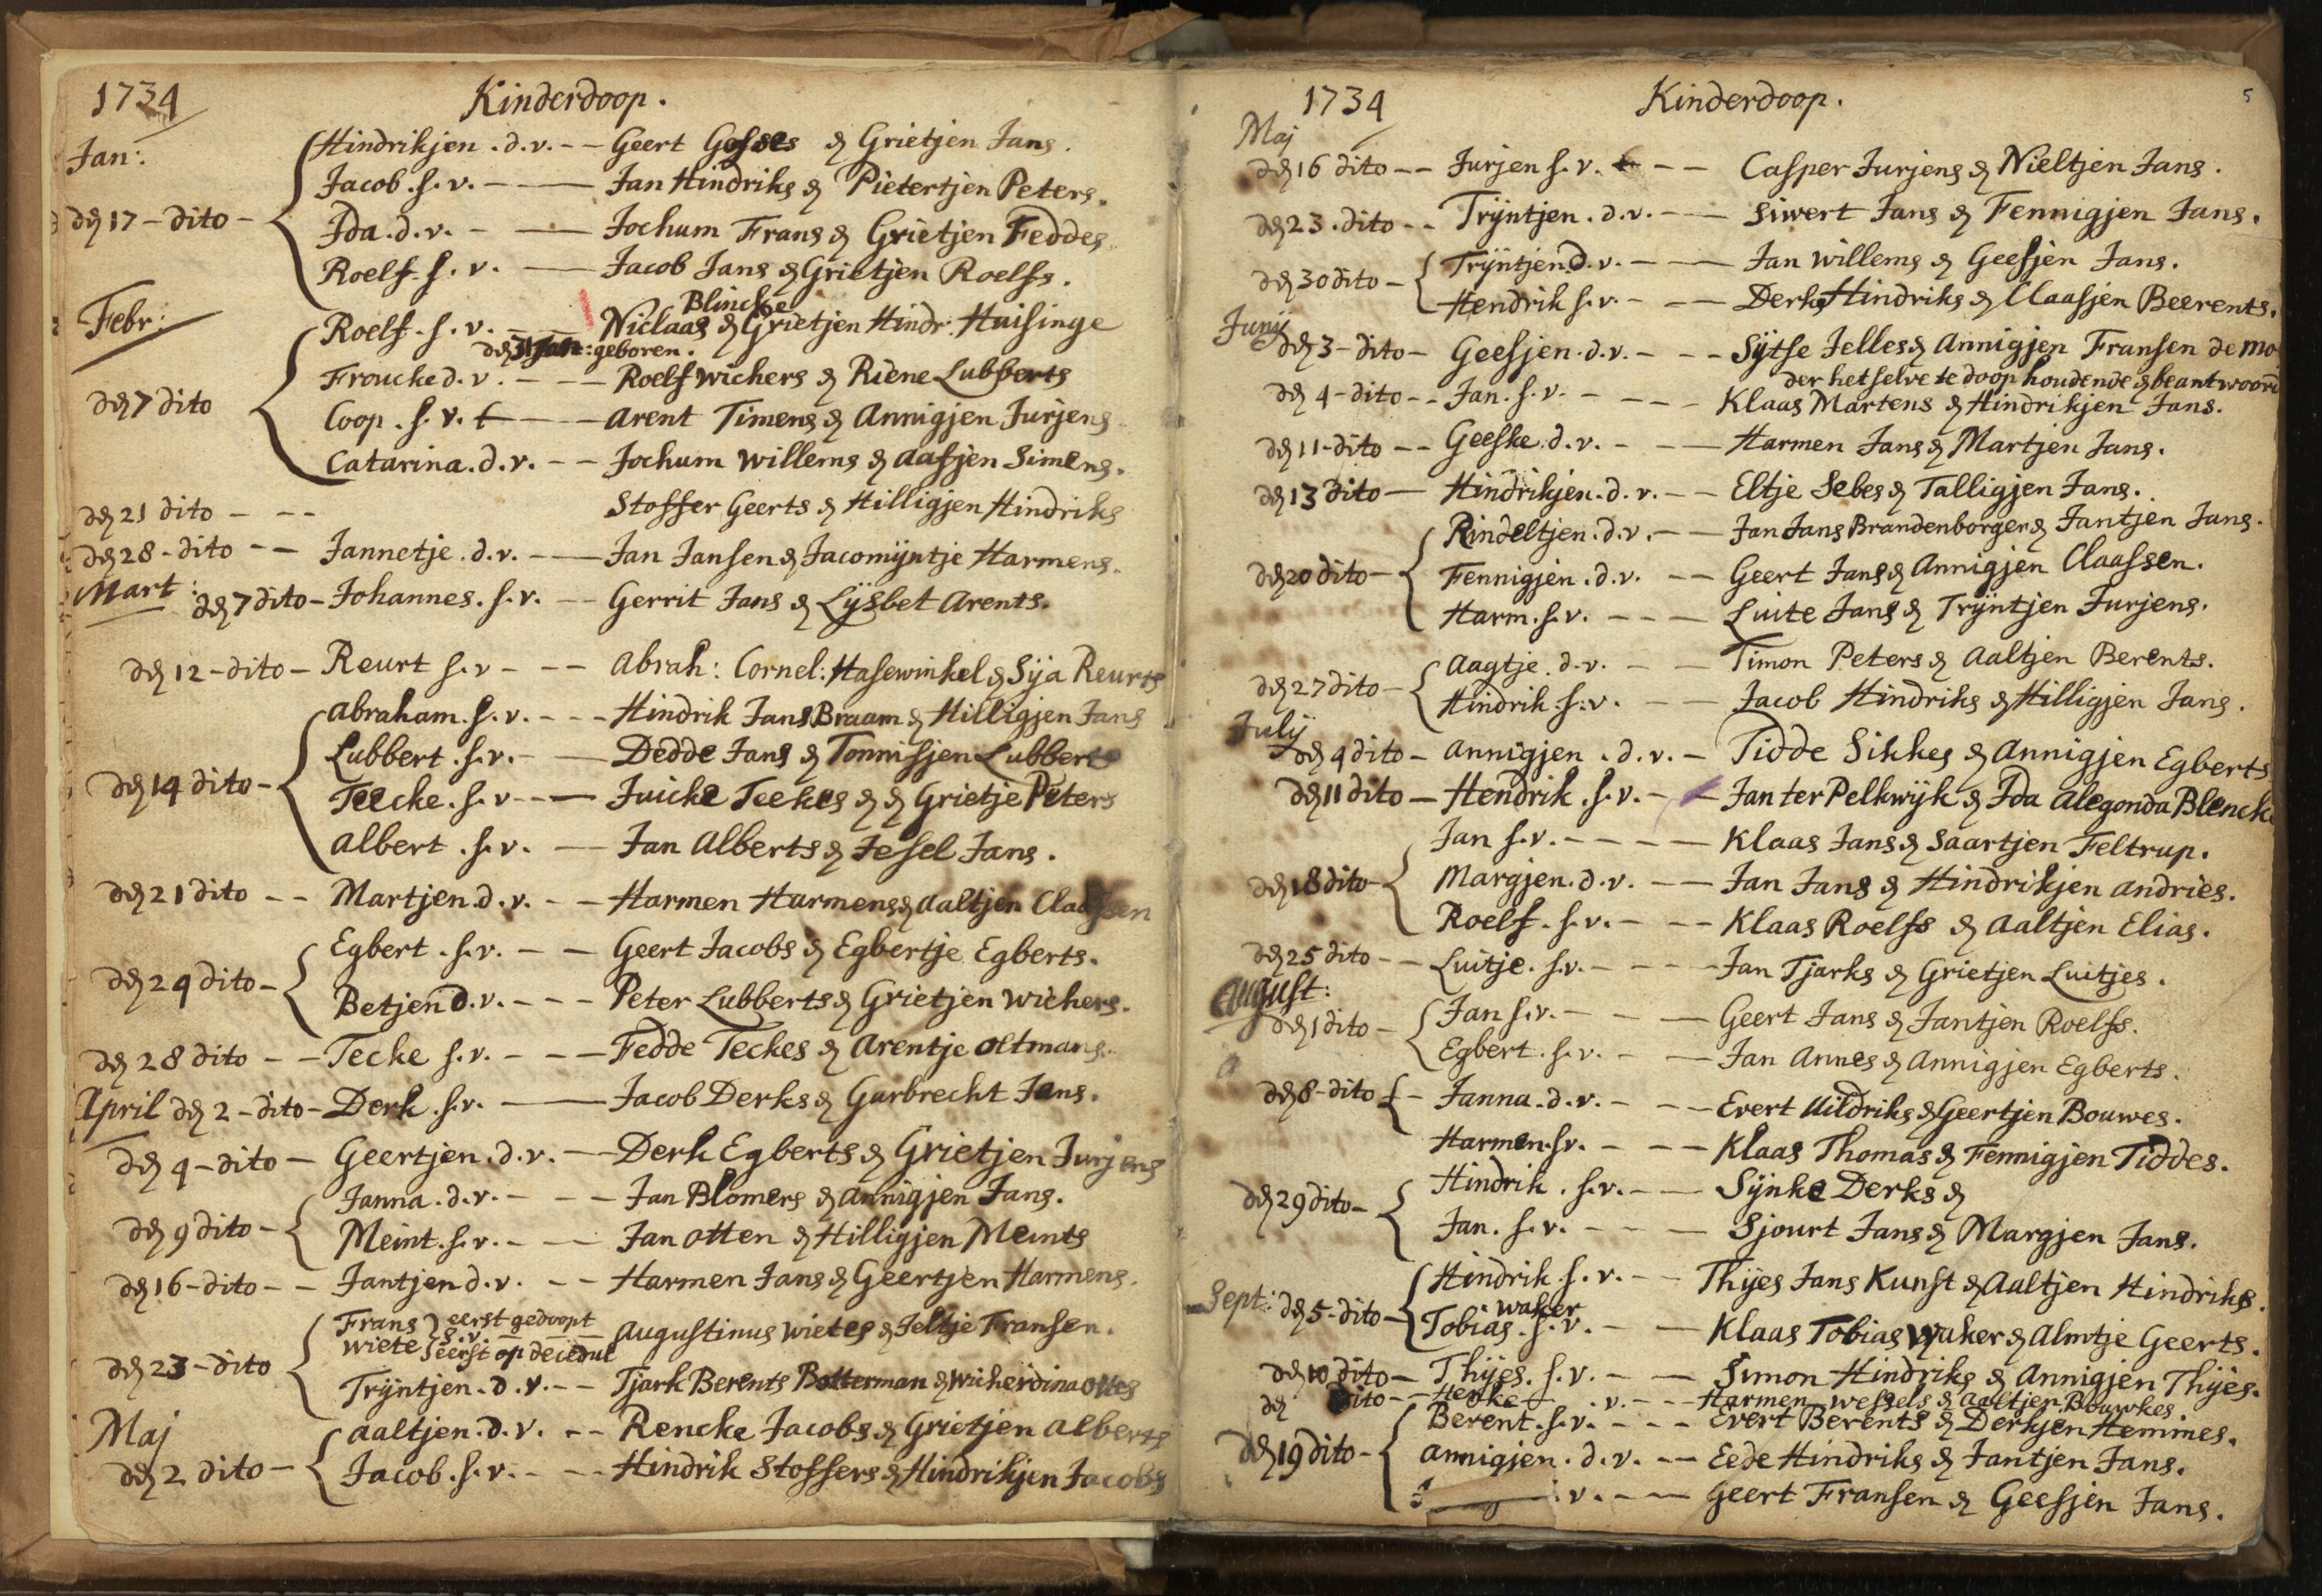 1734 Kinderdoop.
Jan:
Hindrikjen. d. v. -- Geert Gosses & Grietjen Jans.
Jacob. s. v. -- Jan Hindriks & Pietertjen Peters.
den 17 - dito - Ida. d. v. - -- Jochum Frans & Grietjen Feddes.
Roelf. s. v. -- Jacob Jans & Grietjen Roelfs.
Blincke
Febr: Roelf. s. v. -- Niclaas & Grietjen Hindr. Huisinge
den 31 Jan: geboren.
den 7 dito Froucke d. v. --- Roelf Wichers & Riene Lubberts
Coop. s. v. -- Arent Timens & Annigjen Jurjens
Catarina. d. v. -- Jochum Willems & Aafjen Simens.
den 21 dito - -- Stoffer Geerts & Hilligjen Hindriks
den 28 - dito -- Jannetje. d. v. -- Jan Jansen & Jacomijntje Harmens.
Mart: den 7 dito - Johannes. s. v. -- Gerrit Jans & Lijsbet Arents.
den 12 - dito - Reurt s. v - -- Abrah: Cornel: Hasewinkel & Sija Reurts
Abraham. s. v. --- Hindrik Jans Braam & Hilligjen Jans
Lubbert. s. v. -- Dedde Jans & Tonnisjen Lubberts
den 14 dito - Teecke. s. v --- Juicke Teekes & & Grietje Peters
Albert. s. v. -- Jan Alberts & Jesel Jans.
den 21 dito -- Martjen. d. v. -- Harmen Harmens & Aaltjen Claassen
Egbert. s. v. -- Geert Jacobs & Egbertje Egberts.
den 24 dito - Betjen d. v. --- Peter Lubberts & Grietjen Wichers.
den 28 dito -- Tecke s. v. --- Fedde Teckes & Arentje Oltmans.
April den 2 - dito - Derk. s. v. -- Jacob Derks & Garbrecht Jans.
den 4 - dito - Geertjen. d. v. -- Derk Egberts & Grietjen Jurjens
Janna. d. v. --- Jan Blomers & Annigjen Jans.
den 9 dito - Meint. s. v. --- Jan Otten & Hilligjen Meints
den 16 - dito -- Jantjen d. v. -- Harmen Jans & Geertjen Harmens.
Frans } eerst gedoopt
s. v. -- Augustinus Wietes & Jeltje Fransen.
Wiete } eerst op de cedul
den 23 - dito Trijntjen. d. v. -- Tjark Berents Botterman & Wicherdina Ottes
Maj Aaltjen. d. v. -- Rencke Jacobs & Grietjen Alberts
den 2 dito - Jacob. s. v. --- Hindrik Stoffers & Hindrikjen Jacobs
1734 Kinderdoop. 5
Maj
den 16 dito -- Jurjen s. v. -- Casper Jurjens & Nieltjen Jans.
den 23. dito -- Trijntjen. d. v. -- Siwert Jans & Fennigjen Jans.
den 30 dito - Trijntjen d. v. -- Jan Willems & Geesjen Jans.
Hendrik s. v. - -- Derk Hindriks & Claasjen Beerents.
Junij den 3 - dito - Geesjen. d. v. - -- Sijtse Jelles & Annigjen Fransen de mo
der hetselve te doop houdende & beantwoord
den 4 - dito -- Jan. s. v. - --- Klaas Martens & Hindrikjen Jans.
den 11 - dito -- Geeske. d. v. - -- Harmen Jans & Martjen Jans.
den 13 dito -- Hindrikjen. d. v. -- Eltje Sebes & Talligjen Jans.
Rindeltjen. d. v. -- Jan Jans Brandenborger & Jantjen Jans.
den 20 dito - Fennigjen. d. v. -- Geert Jans & Annigjen Claassen.
Harm. s. v. --- Luite Jans & Trijntjen Jurjens.
Aagtje. d. v. -- Timon Peters & Aaltjen Berents.
den 27 dito - Hindrik. s. v. -- Jacob Hindriks & Hilligjen Jans.
Julij
den 4 dito - Annigjen. d. v. - Tidde Sikkes & Annigjen Egberts
den 11 dito - Hendrik. s. v. -- Jan ter Pelkwijk & Ida Alegonda Blencke
Jan s. v. ---- Klaas Jans & Saartjen Feltrup.
den 18 dito - Margjen. d. v. -- Jan Jans & Hindrikjen Andries.
Roelf. s. v. --- Klaas Roelfs & Aaltjen Elias.
den 25 dito -- Luitje. s. v. --- Jan Tjarks & Grietjen Luitjes.
August:
den 1 dito - Jan s. v. --- Geert Jans & Jantjen Roelfs.
Egbert. s. v. -- Jan Annes & Annigjen Egberts.
den 8 - dito - Janna. d. v. --- Evert Uildriks & Geertjen Bouwes.
Harmen. s. v. --- Klaas Thomas & Fennigjen Tiddes.
den 29 dito - Hindrik. s. v. -- Sijnke Derks &
Jan. s. v. --- Sjourt Jans & Margjen Jans.
Sept: den 5 - dito - Hindrik. s. v. -- Thijes Jans Kunst & Aaltjen Hindriks.
waker
Tobias. s. v. -- Klaas Tobias Waker & Almtje Geerts.
den 10 dito - Thijes. s. v. -- Simon Hindriks & Annigjen Thijes.
den dito -- Henke v. --- Harmen Wessels & Aaltjen Bouwkes
Berent. s. v. --- Evert Berents & Derkjen Hemmes.
den 19 dito - Annigjen. d. v. -- Eede Hindriks & Jantjen Jans.
v. --- Geert Fransen & Geesjen Jans.